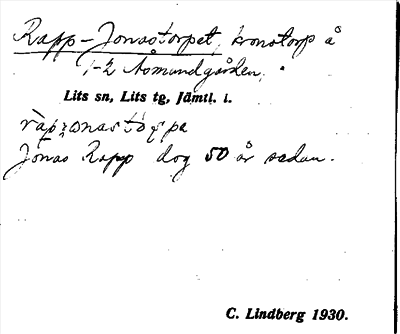 Rapp-Jonastorpet, kronotorp å
1-2 Åsmundgården.
Lits sn, Lits tg, Jämtl. l.
Jonas Rapp dog 50 år sedan.
C. Lindberg 1930.